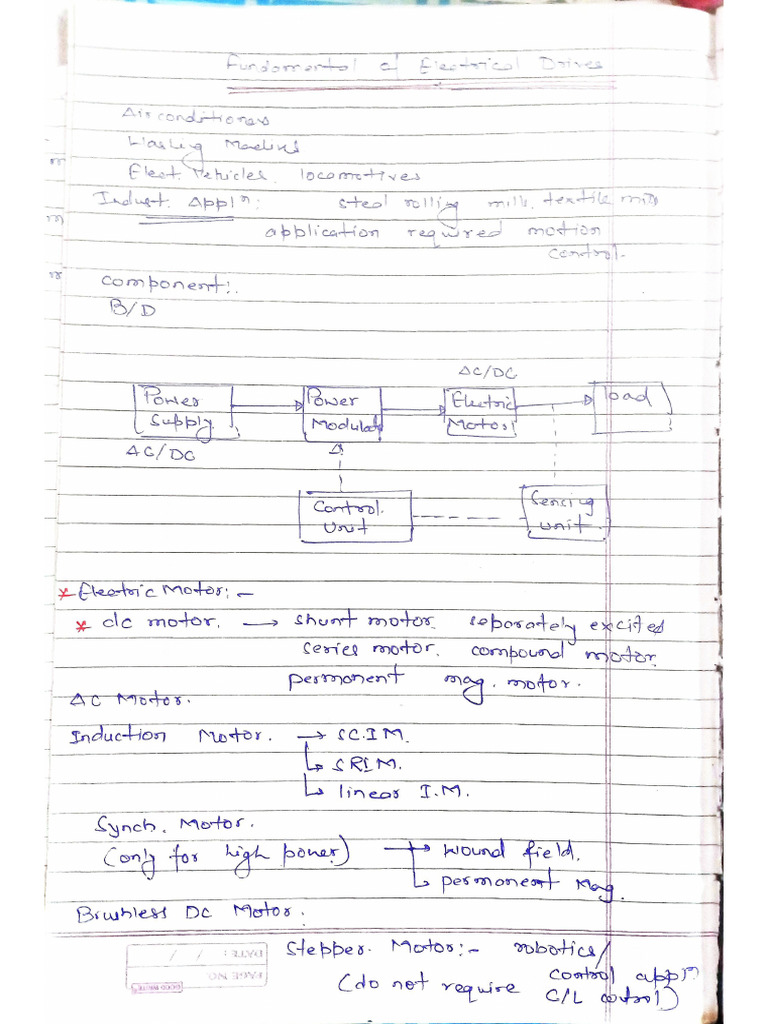 Fundamental of Electrical Drives
Airconditioners
Washing Machins
Elect. Vehicles. locomotives
Indust. Appln: steel rolling mill. textile mills
application required motion
control.
component:.
B/D
AC/DC
Power Supply
Power Modulator
Electric Motor
load
AC/DC
Control Unit
Sensing Unit.
* Electric Motor:-
* dc motor. → shunt motor. separately excited
series motor. compound motor.
permanent mag. motor.
AC Motor.
Induction Motor. → SCIM.
↳ SRIM.
↳ linear I.M.
Synch. Motor.
(only for high power) → wound field.
↳ permanent Mag.
Brushless DC Motor.
Stepper. Motor:- robotics/
control appln
(do not require C/L cotrol)
DATE: / /
PAGE NO.